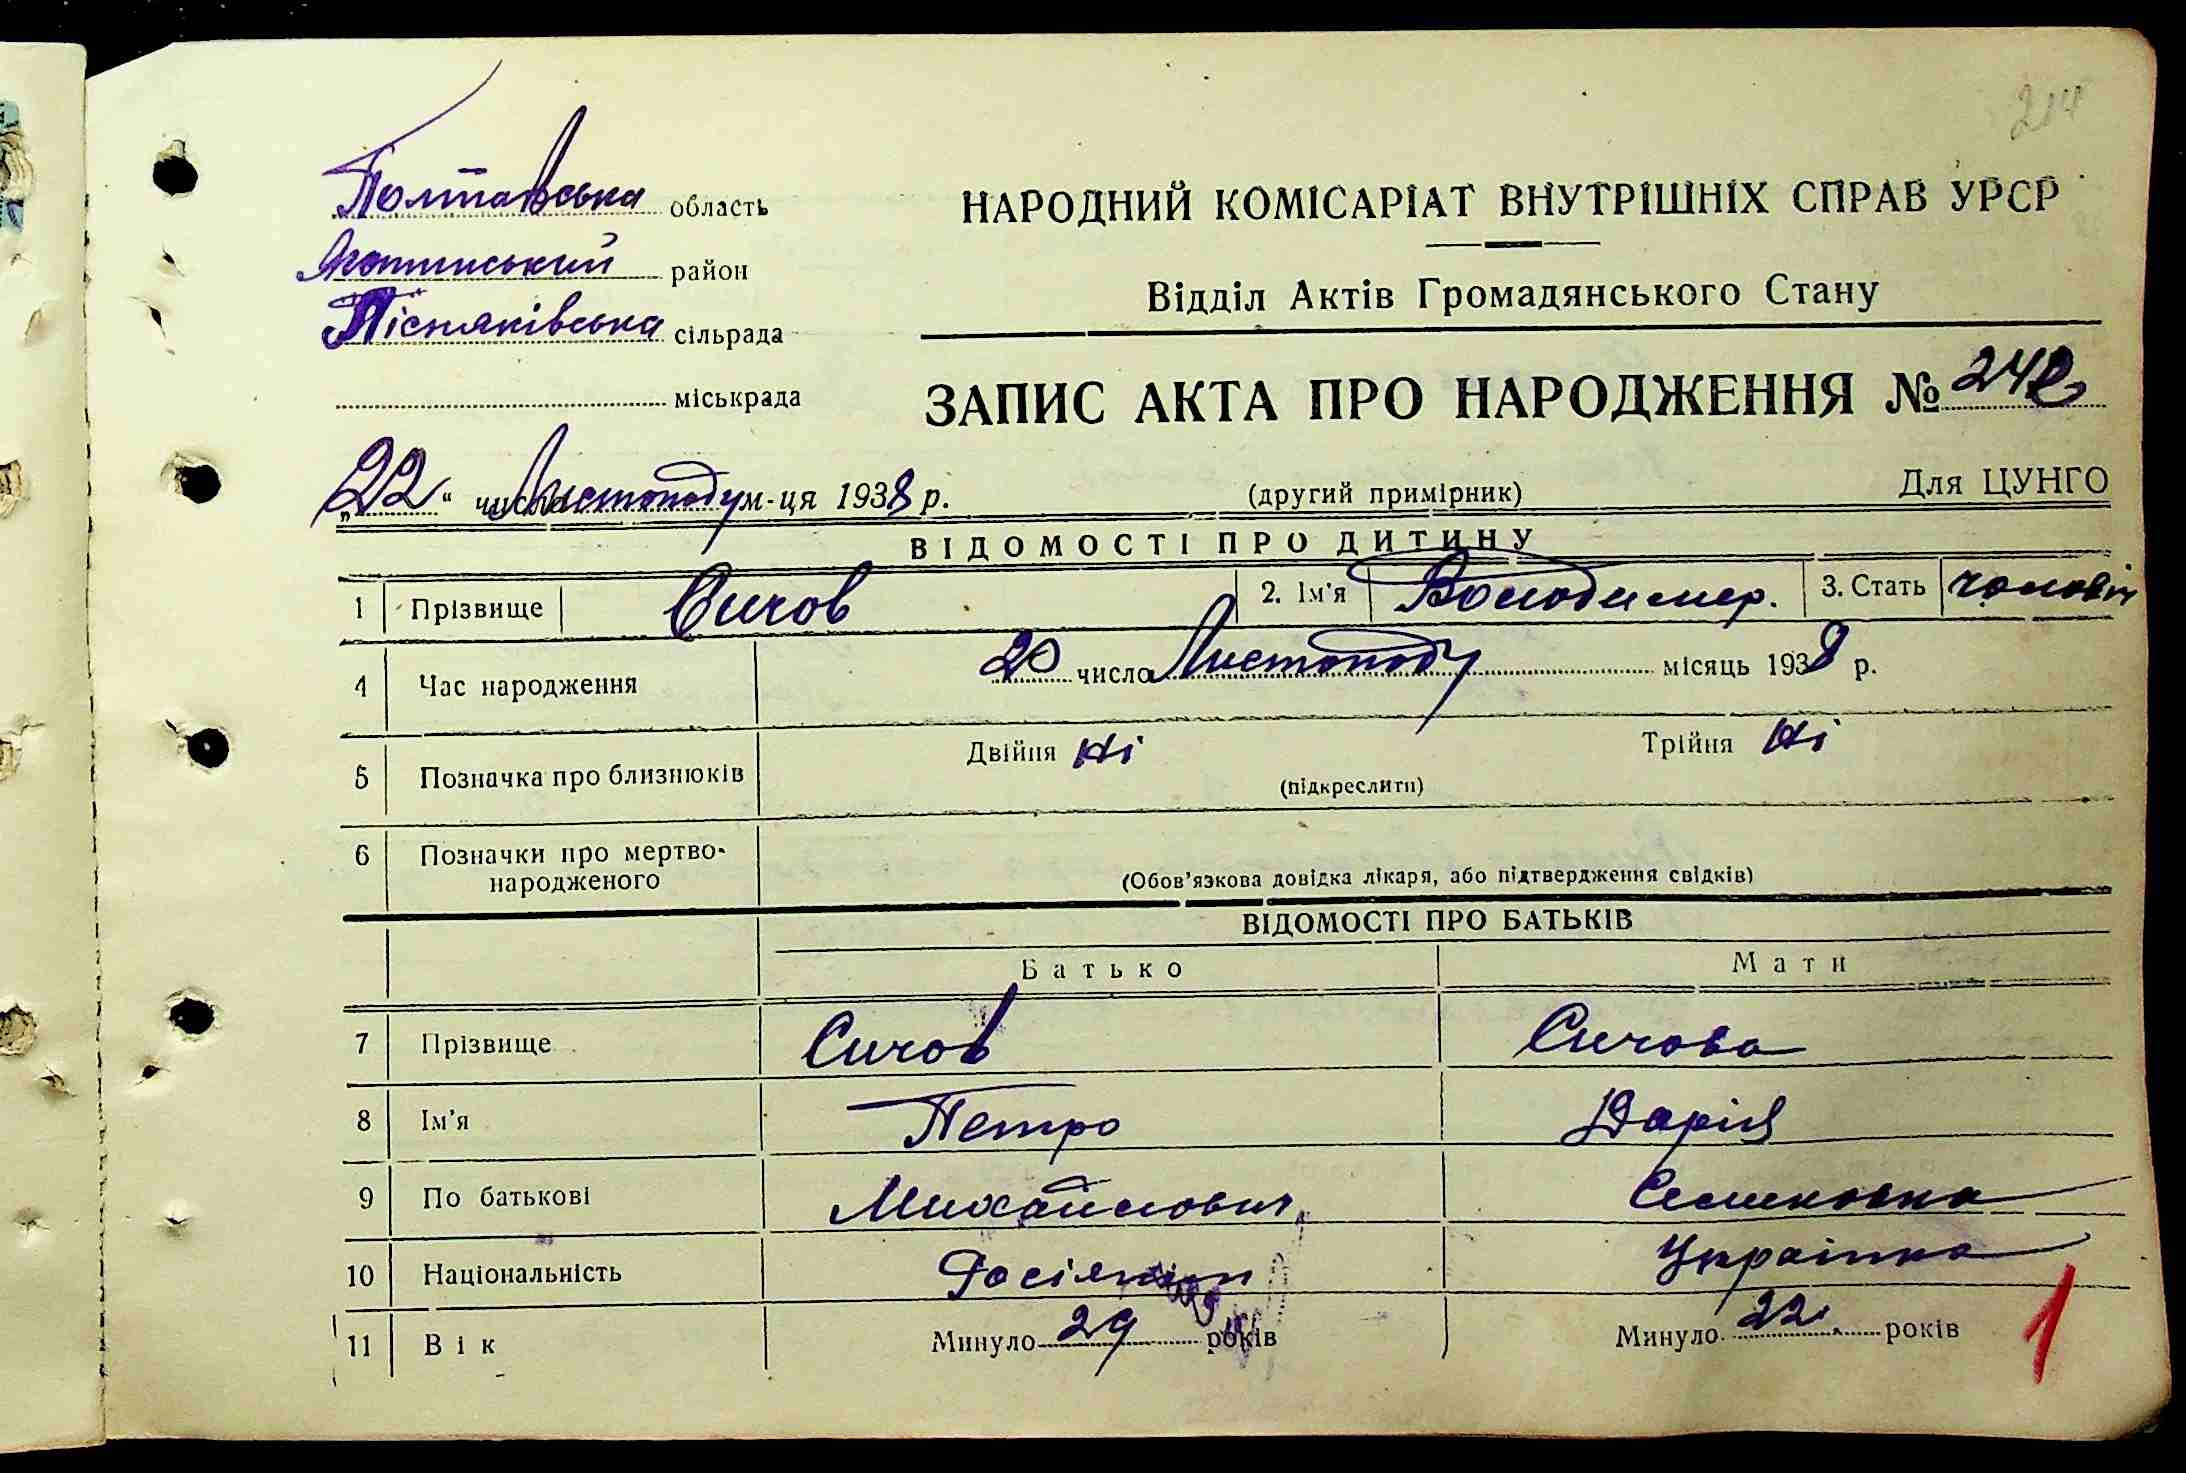 214
Полтавська область
Яготинський район
Пісняківська сільрада
міськрада
НАРОДНИЙ КОМІСАРІАТ ВНУТРІШНІХ СПРАВ УРСР
Відділ Актів Громадянського Стану
ЗАПИС АКТА ПРО НАРОДЖЕННЯ № 242
„22“ числа Листопаду м-ця 1938 р.
(другий примірник)
Для ЦУНГО
ВІДОМОСТІ ПРО ДИТИНУ
1 Прізвище Сичов 2. Ім'я Володимер. 3. Стать чоловіч
4 Час народження 20 число Листопаду місяць 1938 р.
5 Позначка про близнюків Двійня Ні Трійня Ні
(підкреслити)
6 Позначки про мертво-
народженого
(Обов'язкова довідка лікаря, або підтвердження свідків)
ВІДОМОСТІ ПРО БАТЬКІВ
Батько Мати
7 Прізвище Сичов Сичова
8 Ім'я Петро Дарія
9 По батькові Михайлович Семеновна
10 Національність Росіянин Українка
11 Вік Минуло 29 років Минуло 22 років
1